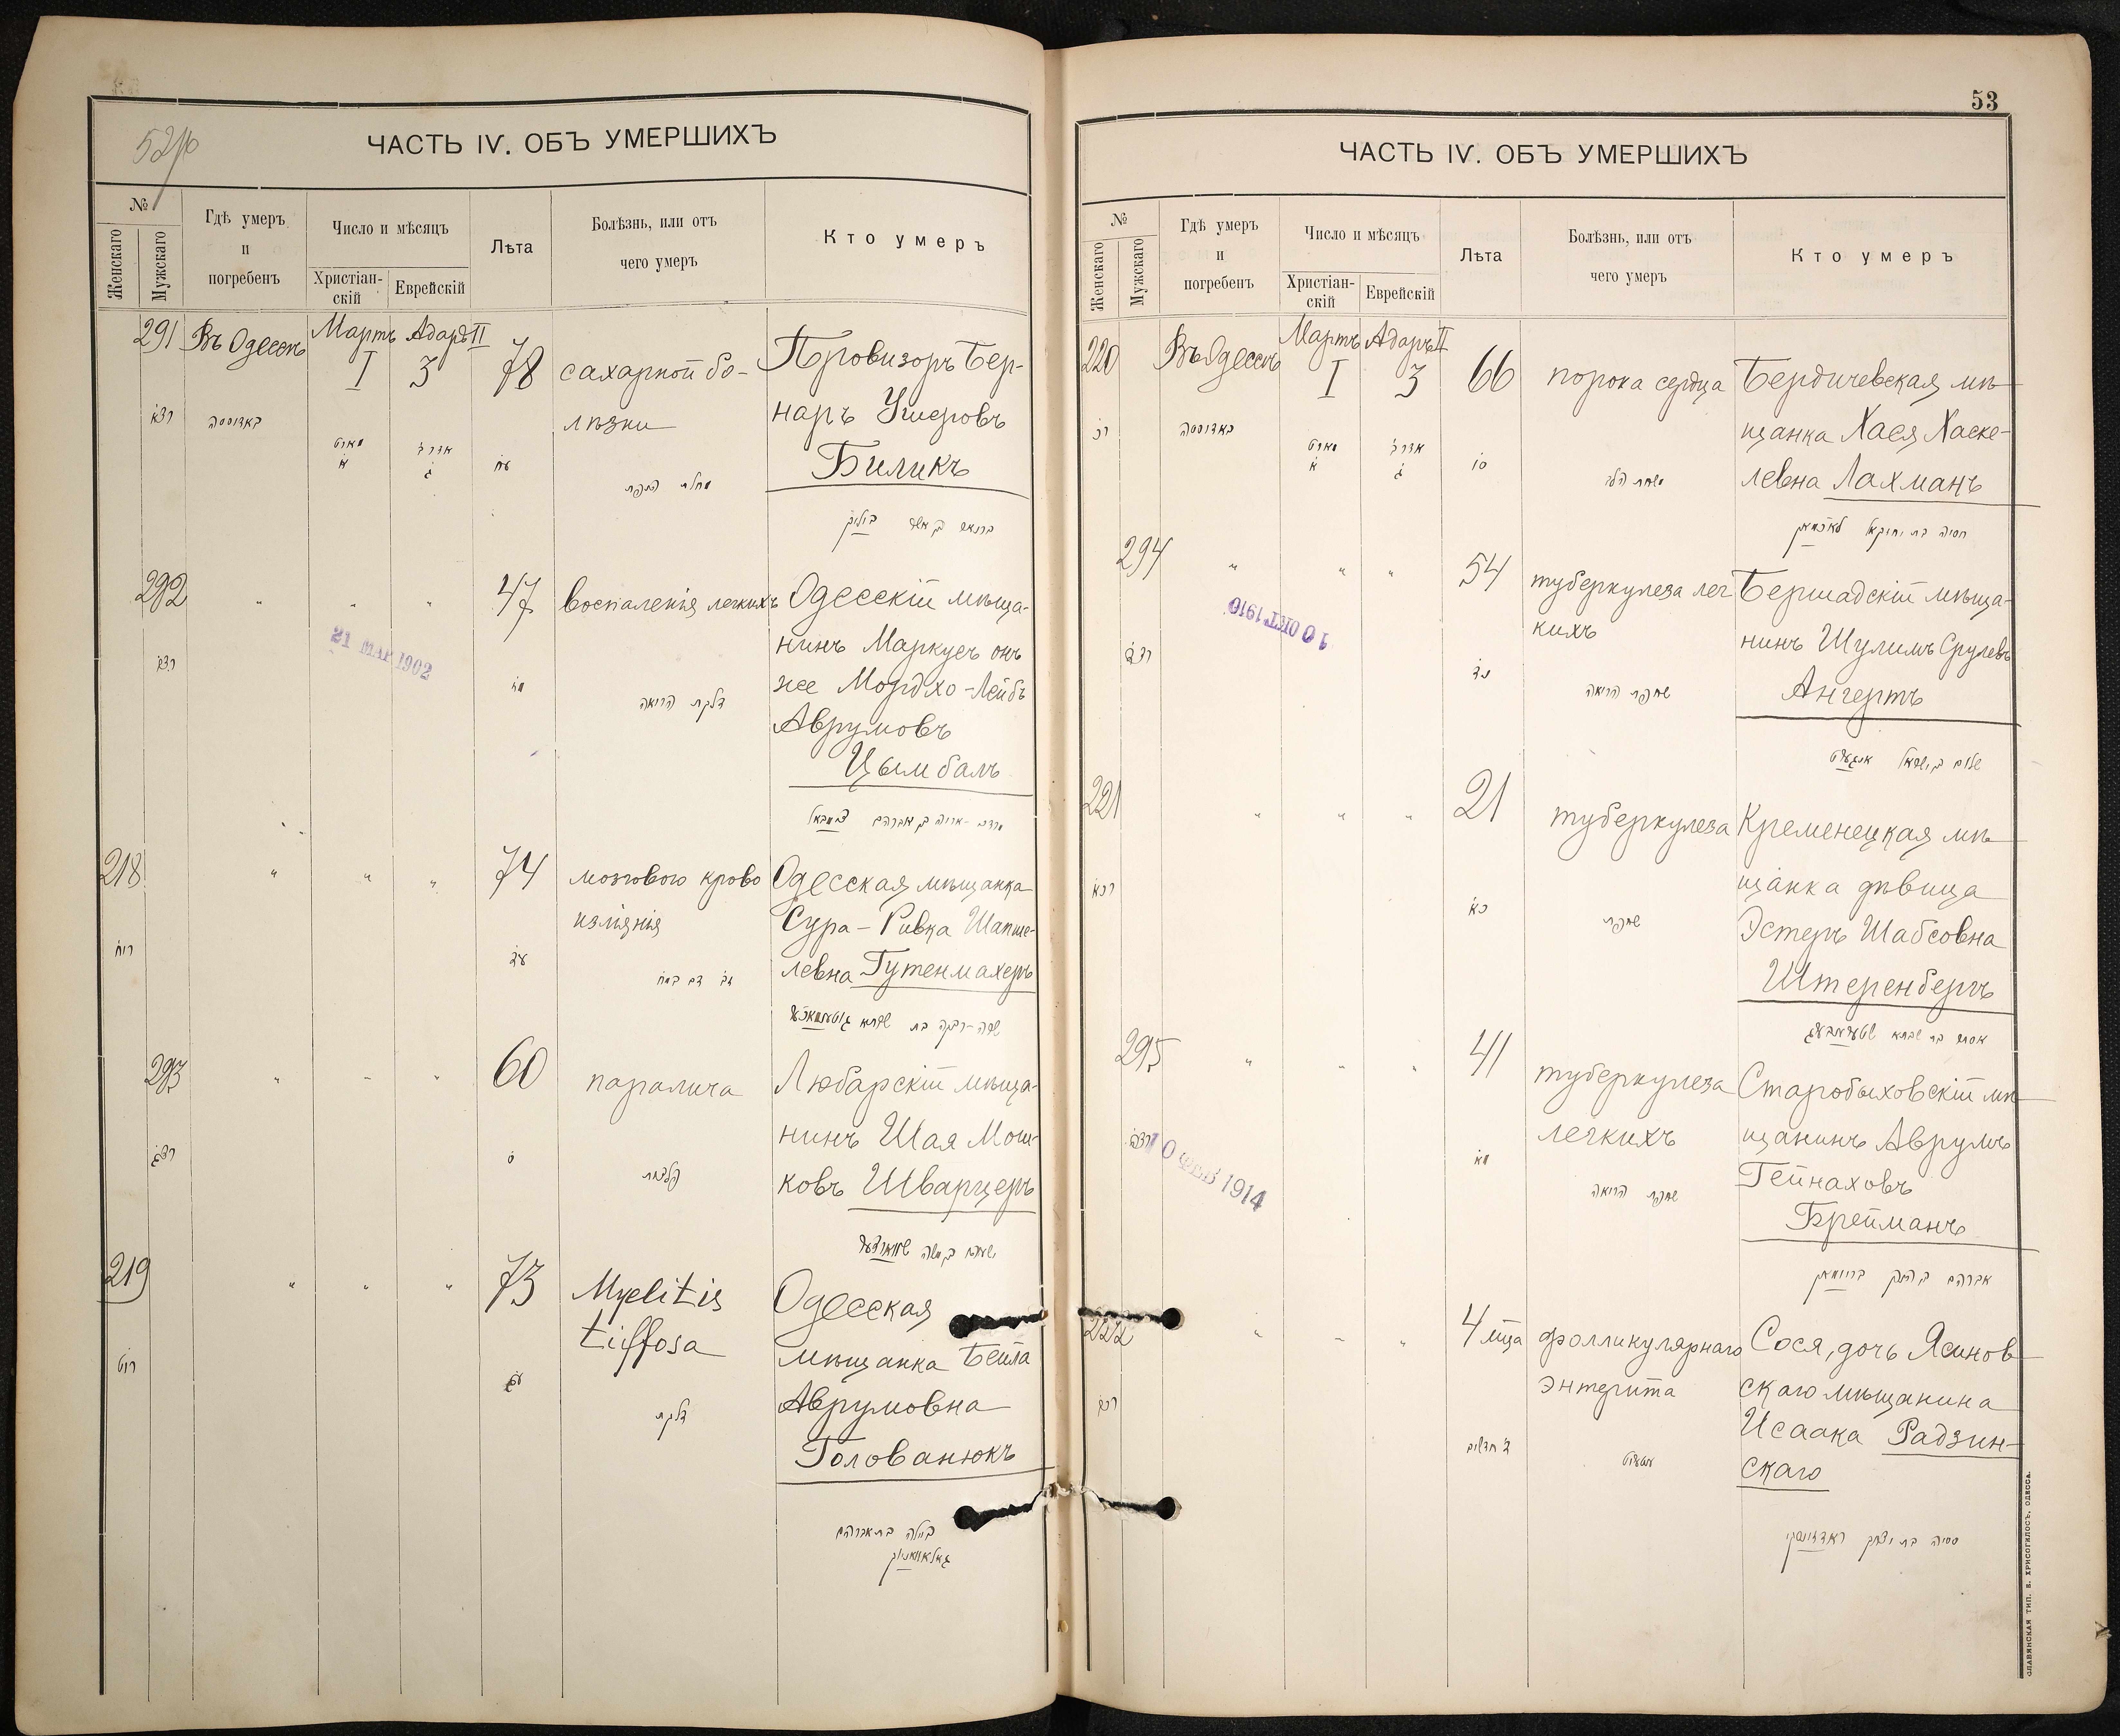 52
ЧАСТЬ IV. ОБЪ УМЕРШИХЪ
№
Женскаго
Мужскаго
Гдѣ умеръ
и
погребенъ
Число и мѣсяцъ
Христіан-
скій
Еврейскій
Лѣта
Болѣзнь, или отъ
чего умеръ
Кто умеръ
291 Въ Одессѣ Мартъ I Адаръ II 3 78 сахарной бо-
лѣзни
Провизоръ Бер-
наръ Ушеровъ
Биликъ
רצא באדעססה מארט א אדר ג עח
292 " " " 47 воспаленія легкихъ
Одесскій мѣща-
нинъ Маркусъ онъ
же Мордхо-Лейбъ
Аврумовъ
Цымбалъ
21 МАР 1902
רצב מז דלקת הריאה
218 " " " 74 мозгового крово
изліянія
Одесская мѣщанка
Сура-Ривка Шапше-
левна Гутенмахеръ
ריח עד
293 " " " 60 паралича
Любарскій мѣща-
нинъ Шая Мош-
ковъ Шварцеръ
רצג ס
219 " " " 73 Myelitis
tiffosa
Одесская
мѣщанка Бейла
Аврумовна
Голованюкъ
ריט דלקת
בילה בת אברהם
53
ЧАСТЬ IV. ОБЪ УМЕРШИХЪ
№
Женскаго
Мужскаго
Гдѣ умеръ
и
погребенъ
Число и мѣсяцъ
Христіан-
скій
Еврейскій
Лѣта
Болѣзнь, или отъ
чего умеръ
Кто умеръ
220 Въ Одессѣ Мартъ I Адаръ II 3 66 порока сердца
Бердичевская мѣ-
щанка Хася Хаске-
левна Лахманъ
רכ באדעססה מארט א אדר ג סו
חסיה בת יחזקאל לאכמאן
294 " " " 54 туберкулеза лег
кихъ
Бершадскій мѣща-
нинъ Шулимъ Срулевъ
Ангертъ
10 ОКТ 1910
רצד נד שחפת הריאה
221 " " " 21 туберкулеза
Кременецкая мѣ-
щанка дѣвица
Эстеръ Шабсовна
Штеренбергъ
רכא כא שחפת
295 " " " 41 туберкулеза
легкихъ
Старобыховскій мѣ-
щанинъ Аврумъ
Гейнаховъ
Брейманъ
10 ФЕВ 1914
רצה מא שחפת הריאה
222 " " " 4 мца фолликулярнаго
энтерита
Сося, дочь Ясинов-
скаго мѣщанина
Исаака Радзин-
скаго
רכב ד חדשים
סוסיה בת יצחק ראדזינסקי
СЛАВЯНСКАЯ ТИП. Е. ХРИСОГЕЛОСЪ. ОДЕССА.